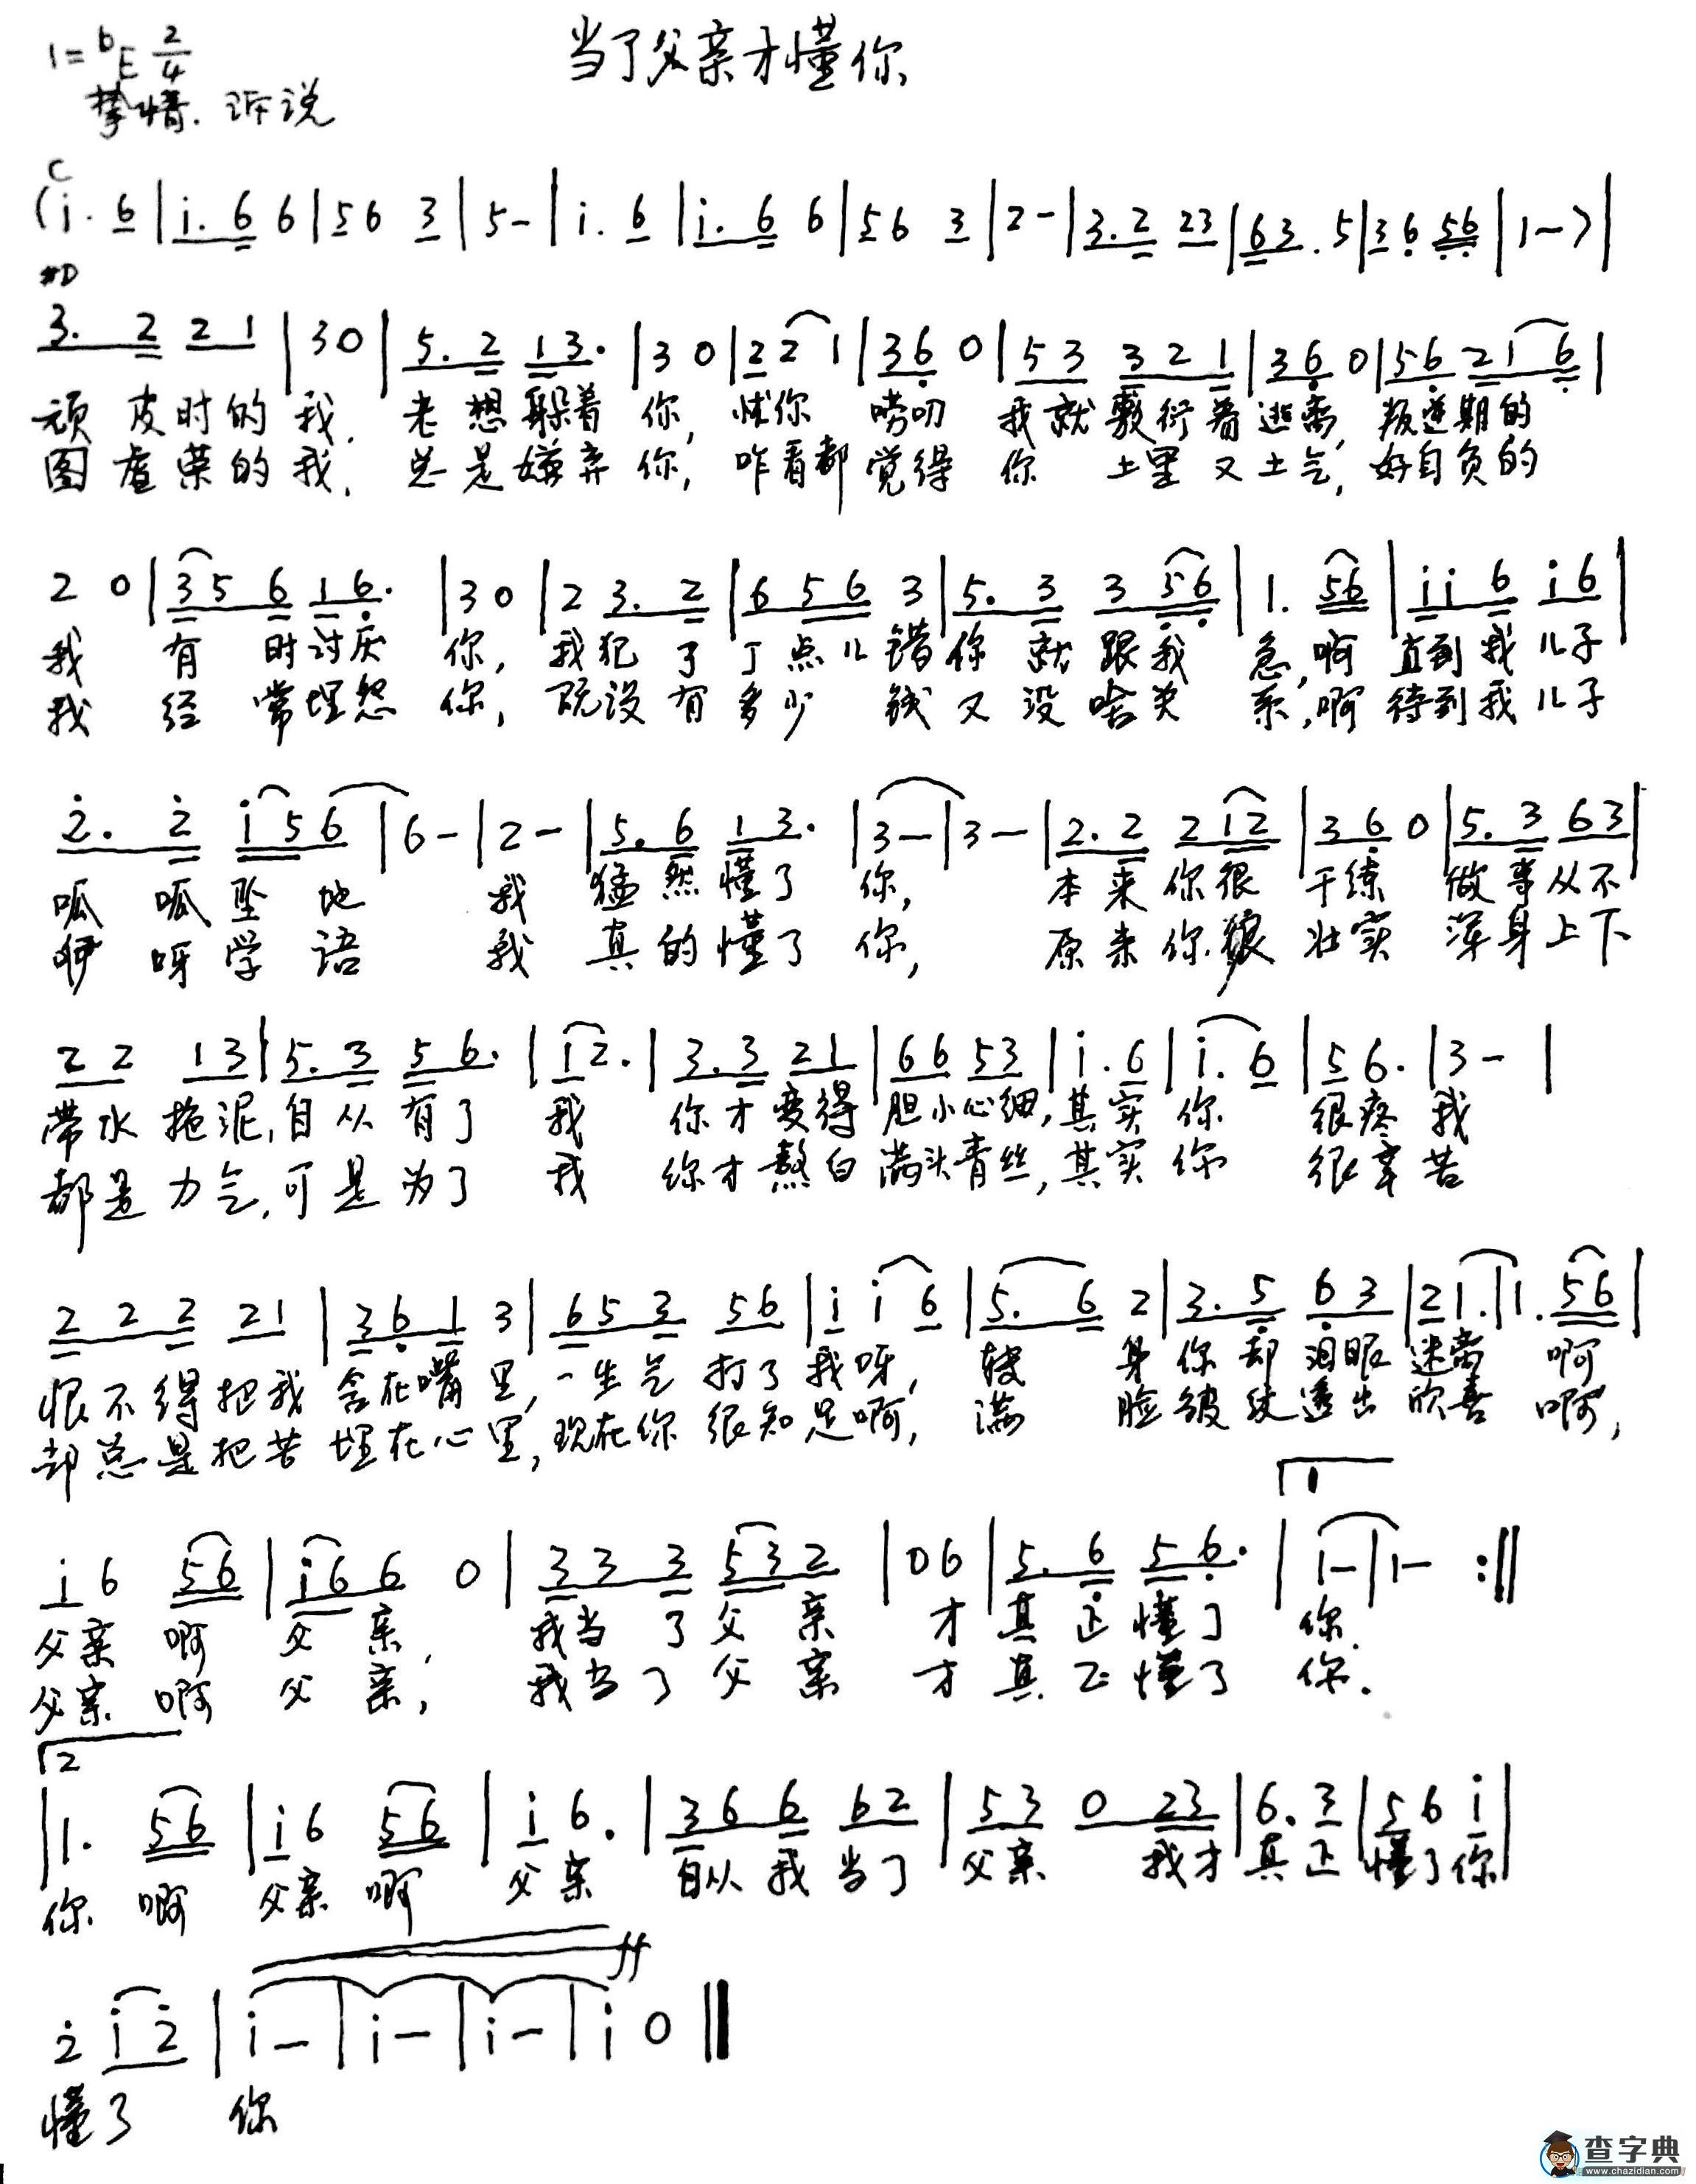 当了父亲才懂你
1=bE 2/4
挚情.诉说
C
(i. 6 | i. 6 6 | 56 3 | 5- | i. 6 | i. 6 6 | 56 3 | 2- | 3. 2 23 | 63. 5 | 36 56 | 1-) |
#D
3. 2 2 1 | 3 0 | 5. 2 1 3. | 3 0 | 2 2 1 | 3 6 0 | 5 3 3 2 1 | 3 6 0 | 5 6 2 1 6 |
顽皮时的我,老想躲着你,忧你唠叨我就敷衍着逃离,叛逆期的
图虚荣的我,总是嫌弃你,咋看都觉得你土里又土气,好自负的
2 0 | 3 5 6 1 6. | 3 0 | 2 3. 2 | 6 5 6 3 | 5. 3 3 5 6 | 1. 56 | i i 6 i 6 |
我有时讨厌你,我犯了丁点儿错你就跟我急,啊直到我儿子
我经常埋怨你,既没有多少钱又没啥关系,啊待到我儿子
2. 2 i 5 6 | 6- | 2- | 5. 6 1 3. | 3- | 3- | 2. 2 2 1 2 | 3 6 0 | 5. 3 6 3 |
呱呱坠地我猛然懂了你,本来你很干练做事从不
咿呀学语我真的懂了你,原来你很壮实浑身上下
2 2 1 3 | 5. 3 5 6. | 1 2. | 3. 3 2 1 | 6 6 5 3 | i. 6 | i. 6 | 5 6. | 3- |
带水拖泥,自从有了我你才变得胆小心细,其实你很疼我
都是力气,可是为了我你才熬白满头青丝,其实你很辛苦
2 2 2 2 1 | 3 6 1 3 | 6 5 3 5 6 | i i 6 | 5. 6 2 | 3. 5 6 3 | 2 1. | 1. 56 |
恨不得把我含在嘴里,一生气打了我呀,转身你却泪眼迷离啊
却总是把苦埋在心里,现在你很知足啊,满脸皱纹透出欣喜啊,
1
i 6 56 | i 6 6 0 | 3 3 3 5 3 2 | 0 6 | 5. 6 5 6. | 1- | 1- :||
父亲啊父亲,我当了父亲才真正懂了你.
父亲啊父亲,我当了父亲才真正懂了你.
2
| 1. 56 | i 6 56 | i 6. | 3 6 6 6 2 | 5 3 0 2 3 | 6. 3 | 5 6 i |
你啊父亲啊父亲自从我当了父亲我才真正懂了你
ff
2 i 2 | i- | i- | i- | i 0 ||
懂了你
查字典
www.chazidian.com